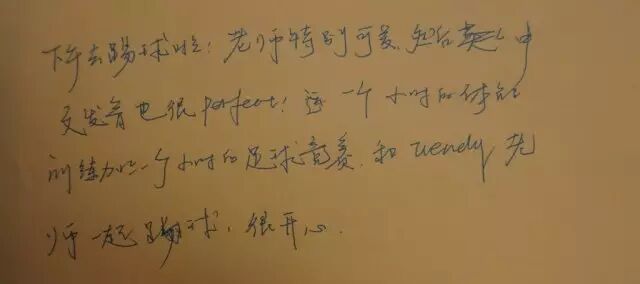 下午去踢球啦!老师特别可爱,然后英文中
文发音也很perfect!一个小时的体能
训练加一个小时的足球竞赛,和wendy老
师一起踢球,很开心.